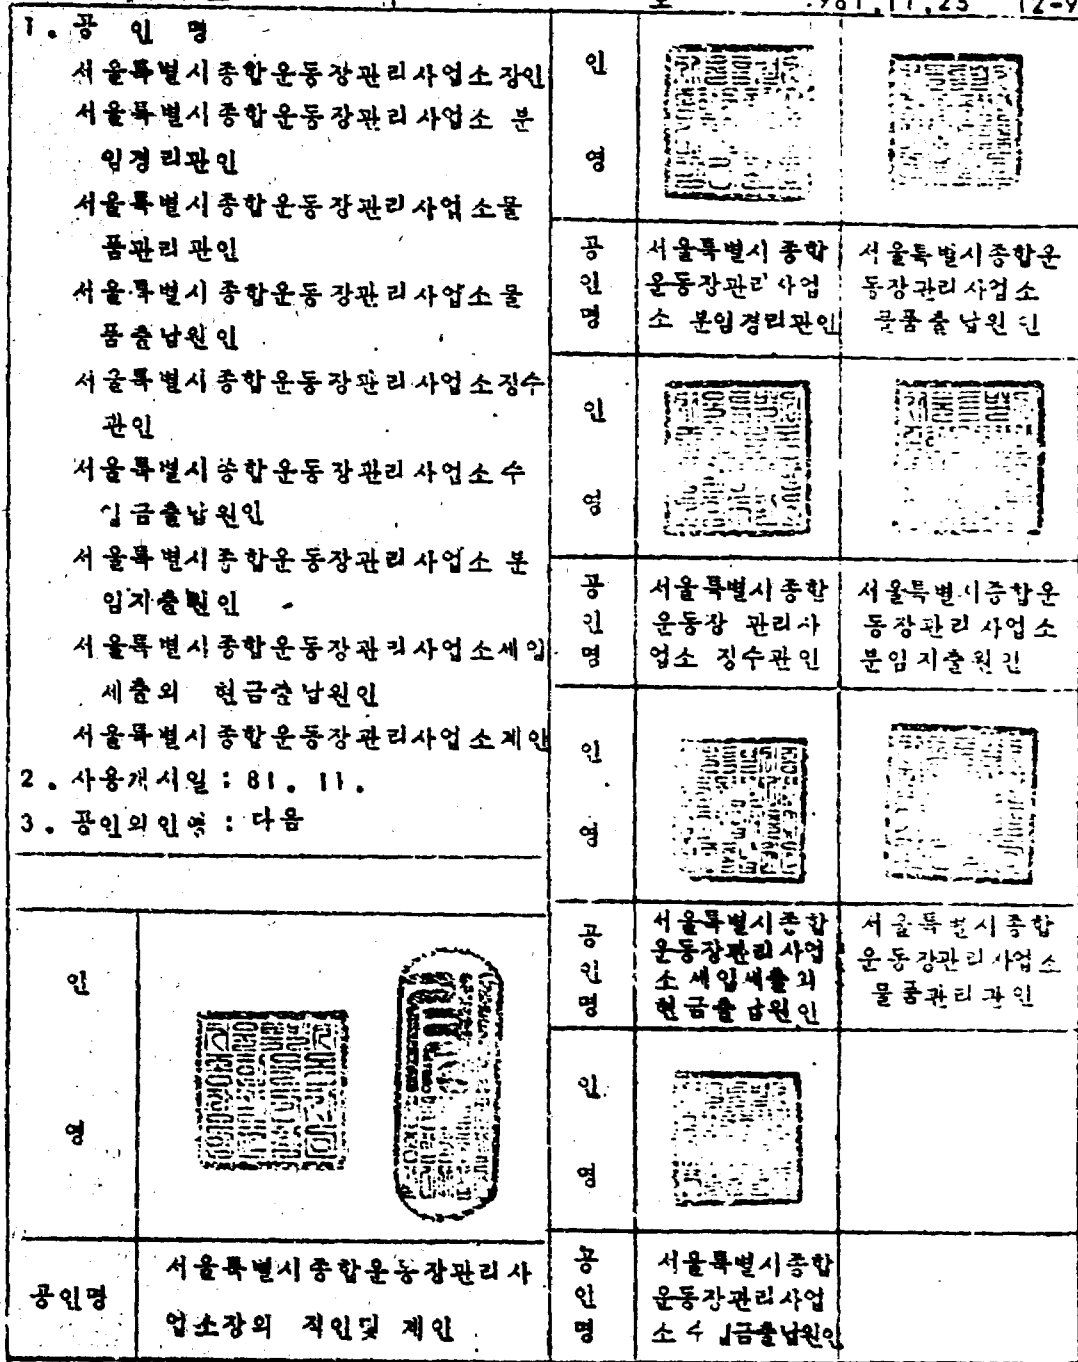 1981.11.23 12-9
1. 공 인 명
서울특별시종합운동장관리사업소장인
서울특별시종합운동장관리사업소 분
임경리관인
서울특별시종합운동장관리사업소물
품관리관인
서울특별시종합운동장관리사업소물
품출납원인
서울특별시종합운동장관리사업소징수
관인
서울특별시종합운동장관리사업소수
입금출납원인
서울특별시종합운동장관리사업소 분
임지출원인
서울특별시종합운동장관리사업소세입
세출외 현금출납원인
서울특별시종합운동장관리사업소계인
2. 사용개시일 : 81. 11.
3. 공인의인영 : 다음
인
영
공인명
서울특별시종합운동장관리사
업소장의 직인및 계인
인
영
공
인
명
서울특별시종합
운동장관리사업
소 분임경리관인
서울특별시종합운
동장관리사업소
물품출납원인
인
영
공
인
명
서울특별시종합
운동장 관리사
업소 징수관인
서울특별시종합운
동장관리사업소
분임지출원인
인
영
공
인
명
서울특별시종합
운동장관리사업
소세입세출외
현금출납원인
서울특별시종합
운동장관리사업소
물품관리관인
인
영
공
인
명
서울특별시종합
운동장관리사업
소수입금출납원인